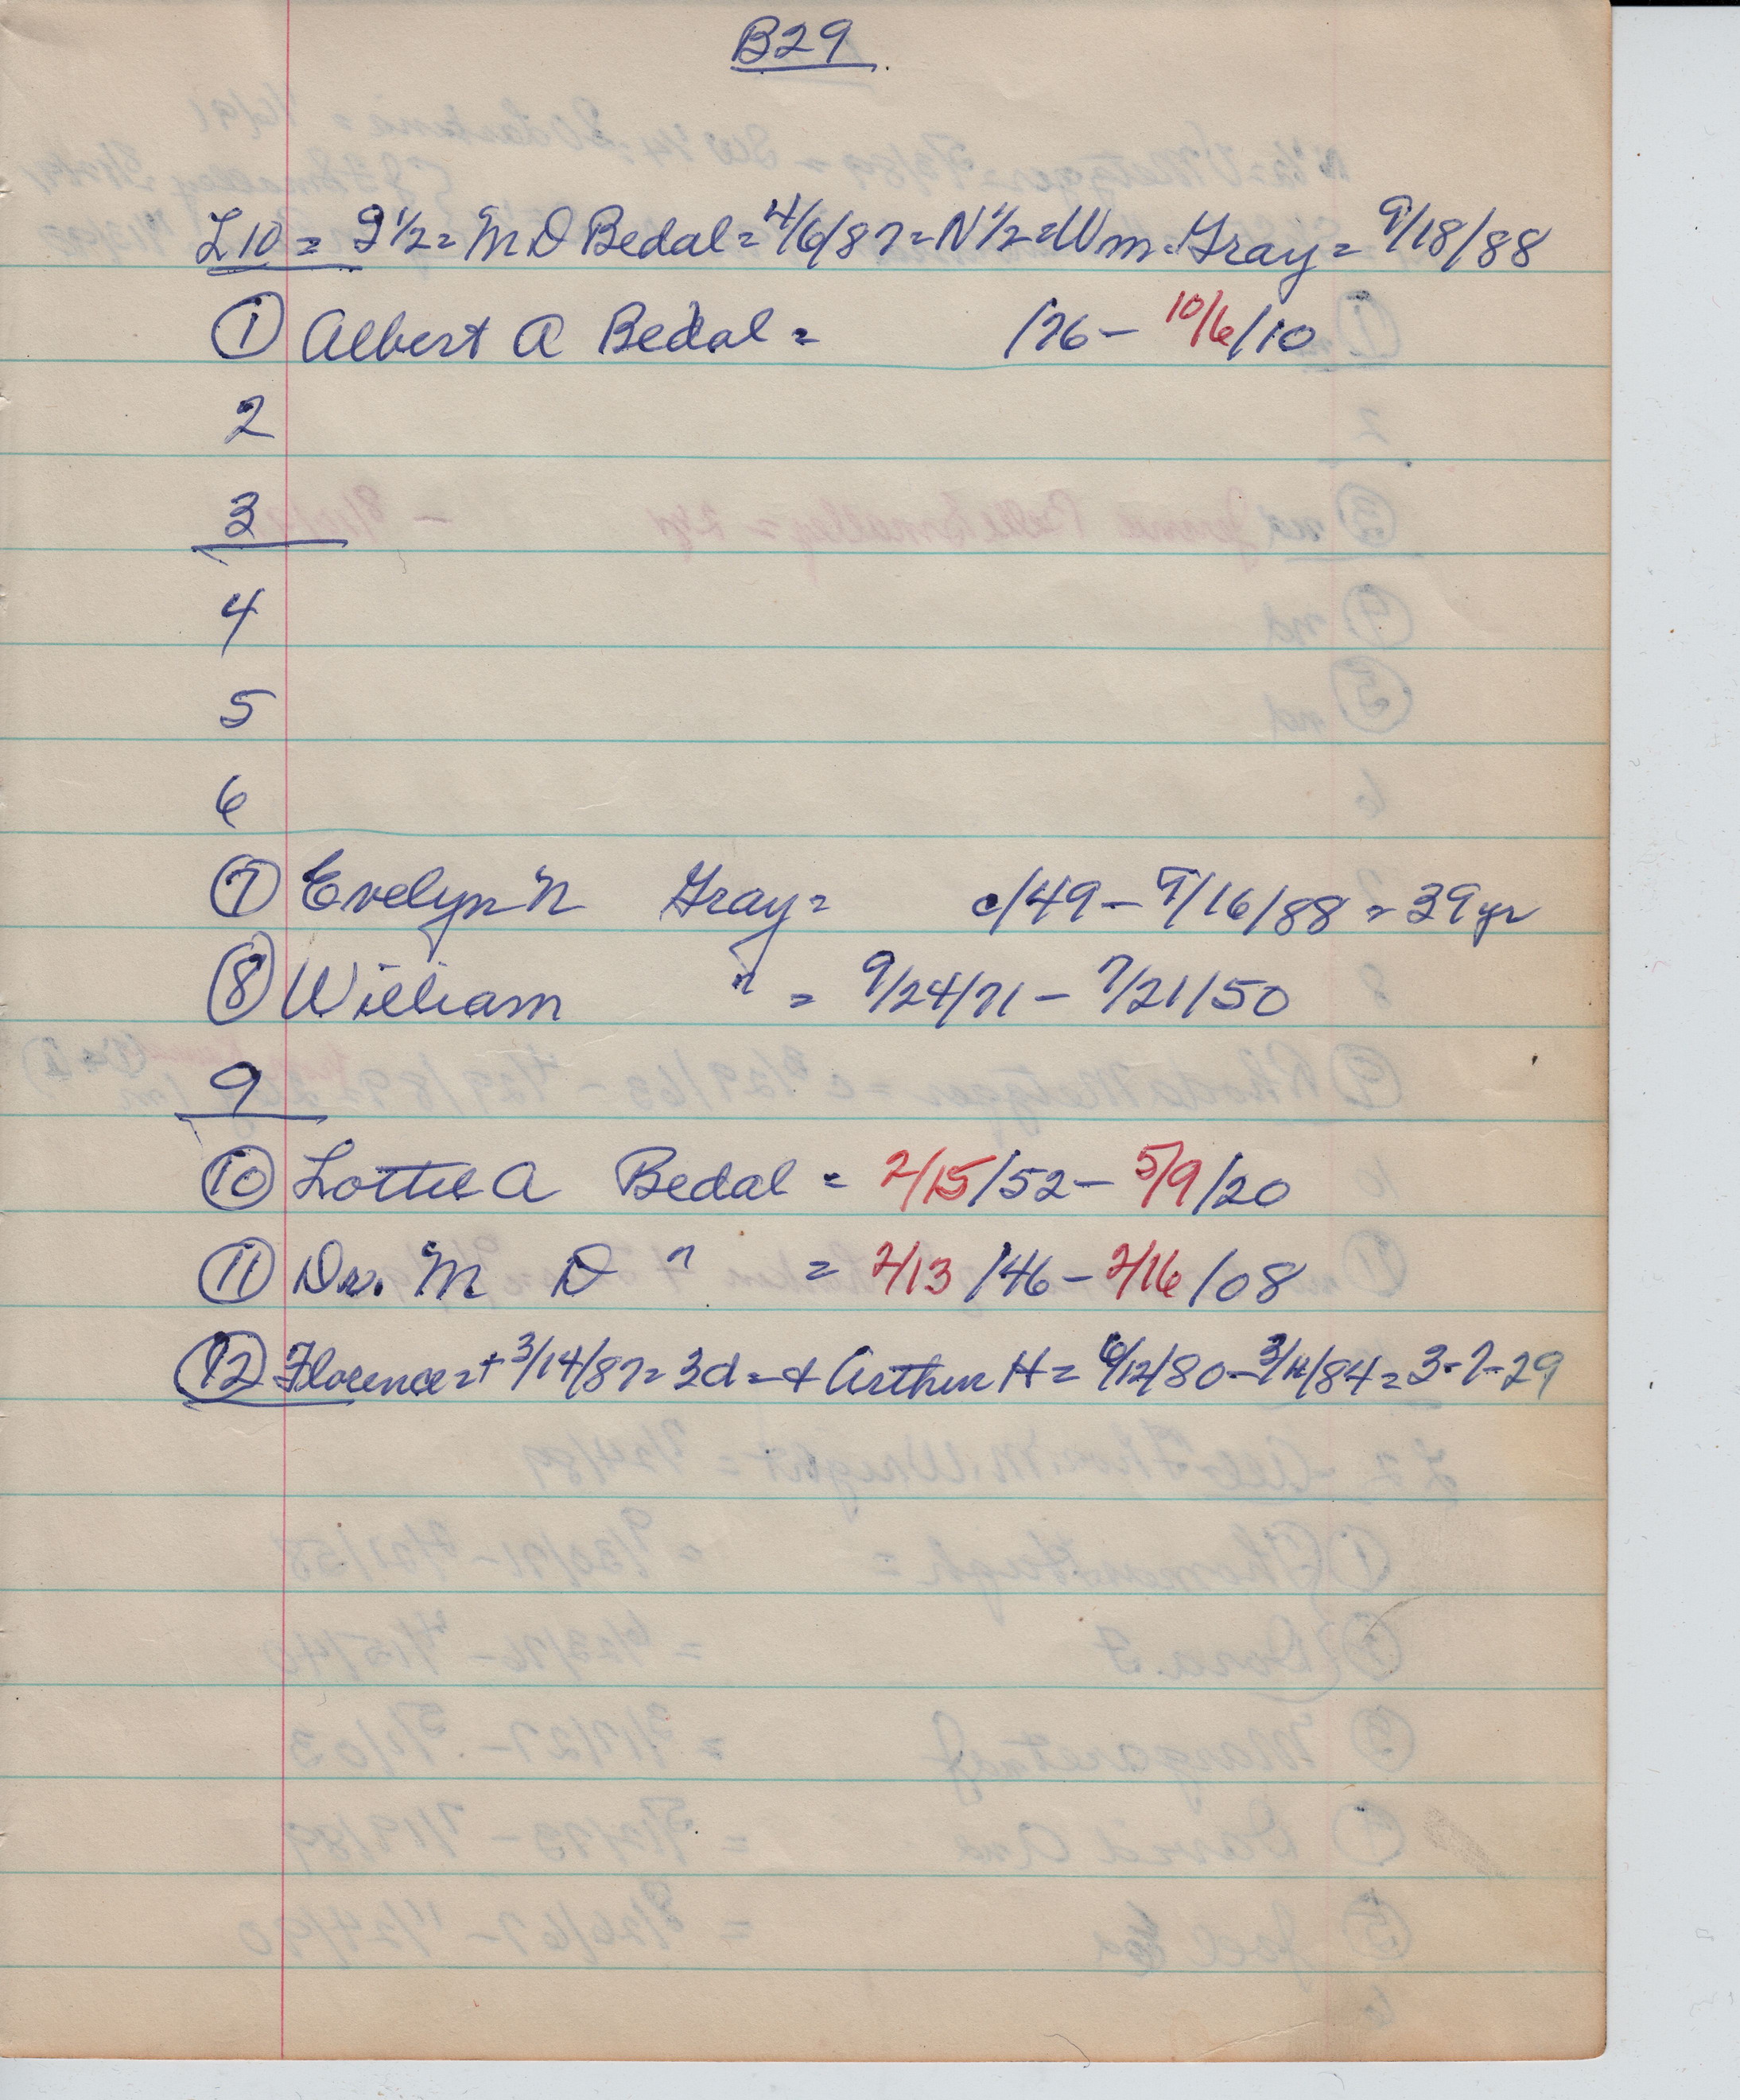 B29
L10 = S 1/2 = M D Bedal = 4/6/87 = N 1/2 = Wm. Gray = 9/18/88
① Albert A Bedal = /76 - 10/6/10
2
3
4
5
6
⑦ Evelyn N Gray = c/49 - 9/16/88 = 39 yr
⑧ William " = 9/24/71 - 7/21/50
9
⑩ Lottie A Bedal = 2/15/52 - 5/9/20
⑪ Dr. M D " = 2/13/46 - 2/16/08
⑫ Florence = + 3/14/87 = 3d = + Arthur H = /12/80 - 3/ /84 = 3-7-29